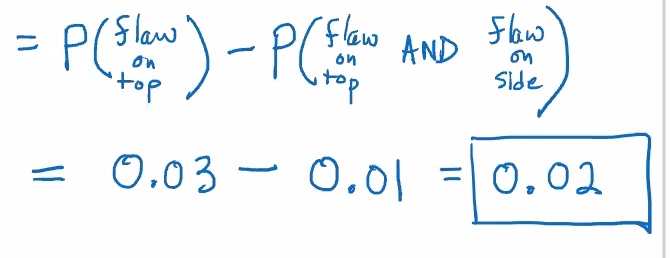 = P(flaw on top) - P(flaw on top AND flaw on side)
= 0.03 - 0.01 = 0.02